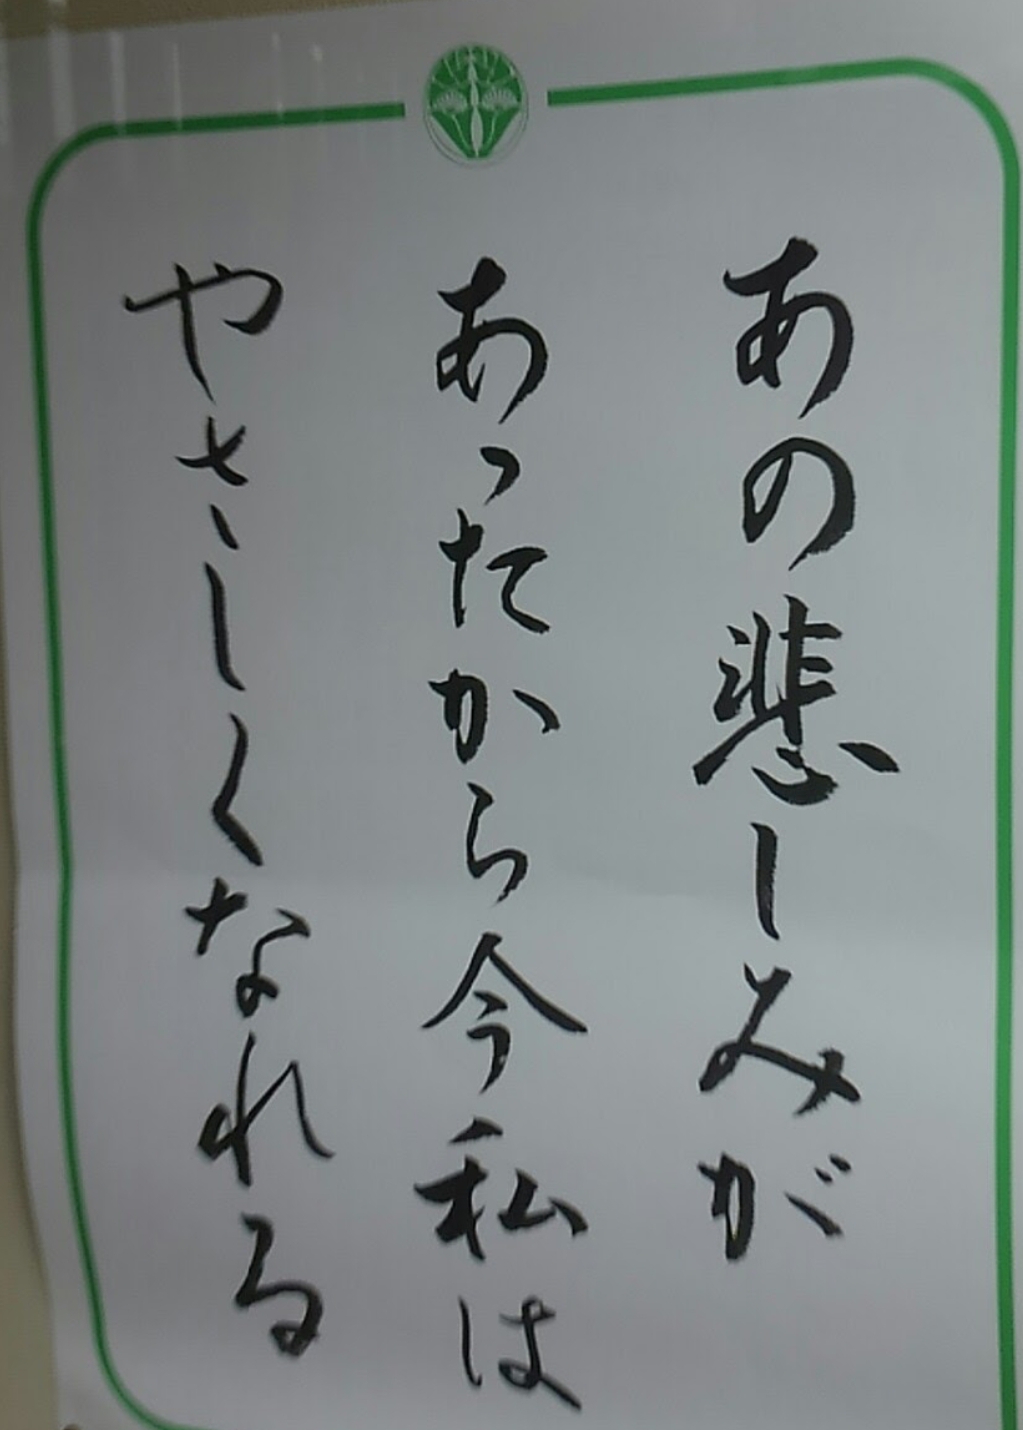 あの悲しみが
あったから今私は
やさしくなれる